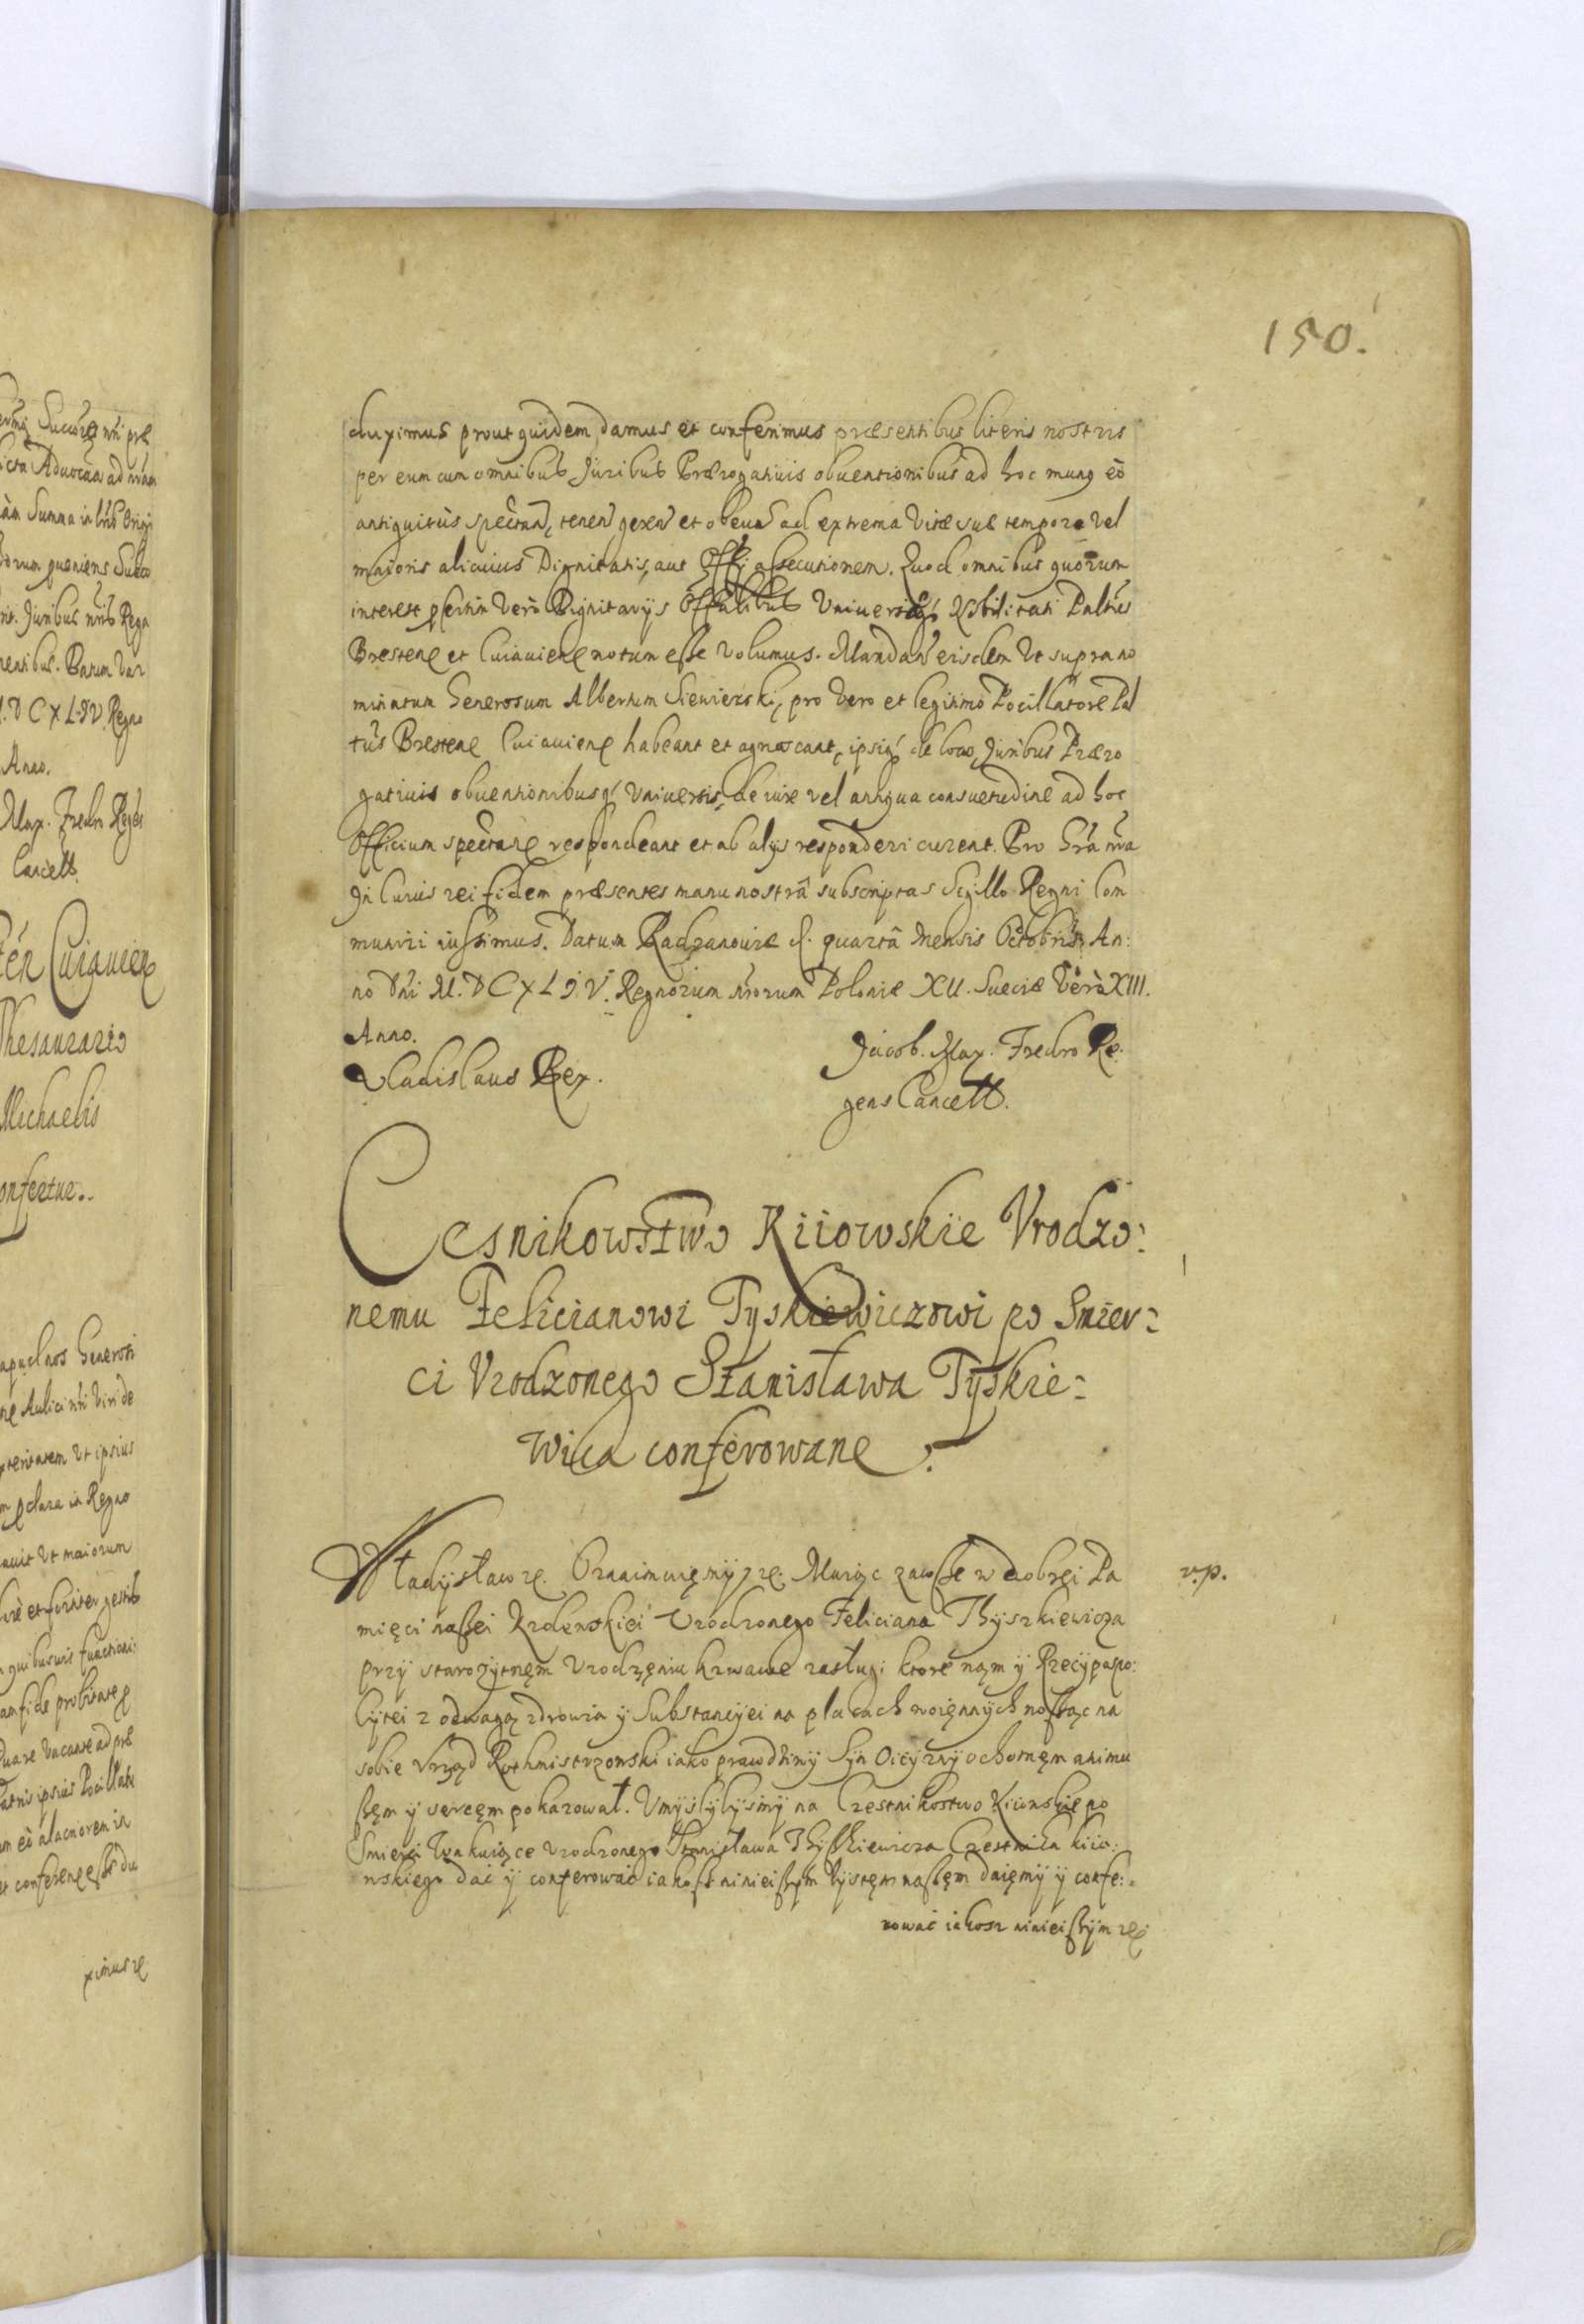 150.
duximus prout quidem damus et conferimus præsentibus literis nostris
per eum cum omnibus Juribus Prærogativis obventionibus ad hoc munq eò
antiquitùs spectan, tenen geren et obeun ad extrema Vitæ suæ tempora vel
maioris alicuius Dignitatis, aut Offi assecutionem. Quod omnibus quorum
interest pertin Verò Dignitarijs Offalibus Universæq Nobilitati Paltus
Brestenę et Cuiavienę notum esse Volumus. Mandan eisdem Ut supra no
minatum Generosum Albertum Siewierski, pro Vero et legitimo Pocillatore Pal
tus Brestenę Cuiavienę habeant et agnoscant, ipsiq de loco, Juribus Præro
gativis obventionibusq Universis, de iure vel antiqua consuetudine ad hoc
Officium spectanę respondeant et ab alijs responderi curent. Pro Gra nra
In Cuius rei fidem præsentes manu nostrâ subscriptas Sigillo Regni Com
muniri iussimus. Datum Radzanoviæ d. quartâ Mensis Octobris An:
no Dni M. D C X L I V. Regnorum nrorum Poloniæ XII. Sueciæ Verò XIII.
Anno.
Vladislaus Rex.
Jacob. Max. Fredro Re:
gens Cancell.
Cesnikowstwo Kiiowskie Vrodzo:
nemu Felicianowi Tyskiewiczowi po Smier:
ci Vrodzonego Stanisława Tyskie:
wica conferowane.
Władysław rę. Oznaimuięmÿ rę. Maiąc zawsze w dobręi Pa
v.p.
mięci naszei Krolewskiei Vrodzonego Feliciana Thyszkiewicza
przÿ starożytnęm Vrodzęniu krwawe zasługi ktore nąm ÿ Rzecÿpospo:
lÿtei z odwagą zdrowia ÿ Substancÿei na placach woięnnÿch nosząc na
sobie Vrząd Rothmistrzowski iako prawdziwÿ Sÿn Oicÿznÿ ochotnęm animu
szęm ÿ sercęm pokazował. Vmÿslÿlÿsmÿ na Czestnikostwo Kiiowskie po
Smierci Wakuiące Vrodzonego Stanisława Thyszkiewicza Czestnika kiio:
wskiego dać ÿ conferować iakosz ninieiszÿm Lÿstęm naszęm daięmÿ ÿ confe:
rować iakosz ninieiszÿm rę